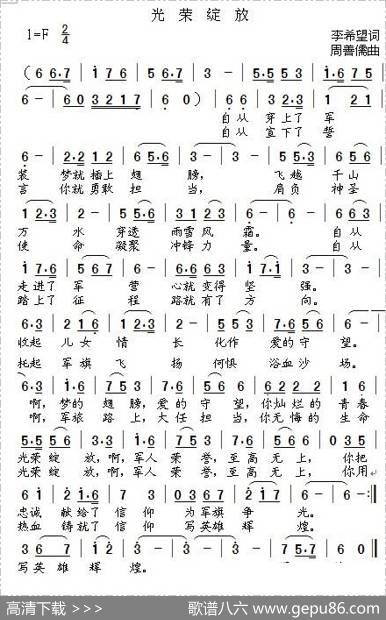 光 荣 绽 放
1=F 2/4
李希望词
周善儒曲
( 6 6·7 | i 7 6 | 5 6·7 | 3 - | 5·5 5 3 | i 6 7 5 |
6 - | 6 0 3 2 1 7 | 6 0 ) | 6 6 | 3 2·3 | 1 2 1 |
自 从 穿 上 了 军
自 从 宣 下 了 誓
2 - | 2·2 1 2 | 6 5·6 | 3 - | 5·3 | 6 5 6 |
装 梦就 插上 翅 膀， 飞 越 千山
言 你就 勇敢 担 当， 肩 负 神圣
1 2·3 | 2 - | 5 5·6 | i 6 5 6 | 3 - | 2·3 |
万 水 穿透 雨雪 风 霜。 自 从
使 命 凝聚 冲锋 力 量。 自 从
i 7·6 | 5 6 7 | 6 - | 6·6 6 5 | i 7·i | 3 - | 3 - |
走进了 军 营 心就 变得 坚 强。
踏上了 征 程 路就 有了 方 向。
6·3 | 2 1 6 | 1 2·3 | 5·6 | i 7 6 | 3 - | 3 - |
收起 儿女 情 长 化作 爱的 守 望。
托起 军旗 飞 扬 何惧 浴血 沙 场。
6·3 | i·6 | 7 5 3 | 2·3 | 1 7·6 | 5 6 | 6 2 2 2 | 1 6 |
啊，梦的 翅 膀，爱的 守 望，你灿烂的 青春
啊，军旅 路 上，大任 担 当，你无悔的 生命
5·5 5 6 | 3·3 | i·6 | 7 5 | 3·5 6 7 | 6 - | 0 3 5 |
光荣绽 放，啊，军人 荣 誉，至高 无 上， 你把
光荣绽 放，啊，军人 荣 誉，至高 无 上， 你用
6 i | 2 i·6 | 7 3 | 0 3 6 7 | 2 i 7 | 6 - | 6 - :|
忠诚 献给了 信仰 为军旗 争 光。
热血 铸就了 信仰 写英雄 辉 煌。
3 6 | 7 i | 3 - | 3 - | 5·5 5·7 | 6 - | 6 0 ‖
写英雄 辉 煌。
高清下载 >>>
歌谱八六 www.gepu86.com